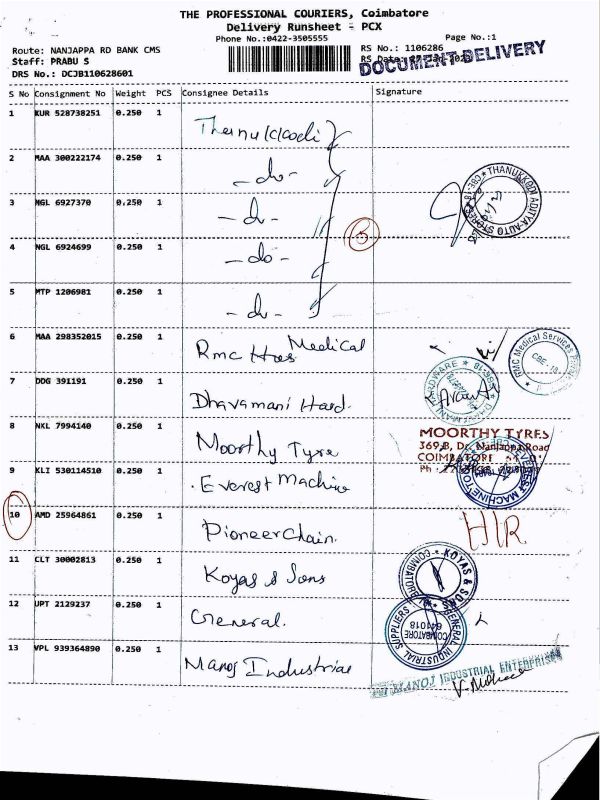 THE PROFESSIONAL COURIERS, Coimbatore
Delivery Runsheet - PCX
Phone No.:0422-3505555
Page No.:1
Route: NANJAPPA RD BANK CMS
RS No.: 1106286
Staff: PRABU S
RS Date:
DOCUMENT DELIVERY
DRS No.: DCJB110628601
S No Consignment No Weight PCS Consignee Details Signature
1 KUR 528738251 0.250 1 Thanukkodi
2 MAA 300222174 0.250 1 -do-
THANUKKODI ADITYA-AUTO STORES CBE-18
3 NGL 6927370 0.250 1 -do-
5
4 NGL 6924699 0.250 1 -do-
5 MTP 1206981 0.250 1 -do-
6 MAA 298352015 0.250 1 Rmc Hos Medical
RMC Medical Services CBE-18
7 DDG 391191 0.250 1 Dhavamani Hard.
HARDWARE
8 NKL 7994140 0.250 1 Moorthy Tyre
MOORTHY TYRES
369,B, Dr. Nanjappa Road
COIMBATORE
Ph :
9 KLI 530114510 0.250 1 Everest Machine
EVEREST MACHINE
10 AMD 25964861 0.250 1 Pioneer Chain.
H/R
11 CLT 30002813 0.250 1 Koyas & Sons
KOYAS & SONS COIMBATORE
12 UPT 2129237 0.250 1 General.
GENERAL INDUSTRIAL SUPPLIERS COIMBATORE 641018
13 VPL 939364890 0.250 1 Manoj Industrial
MANOJ INDUSTRIAL ENTERPRISES